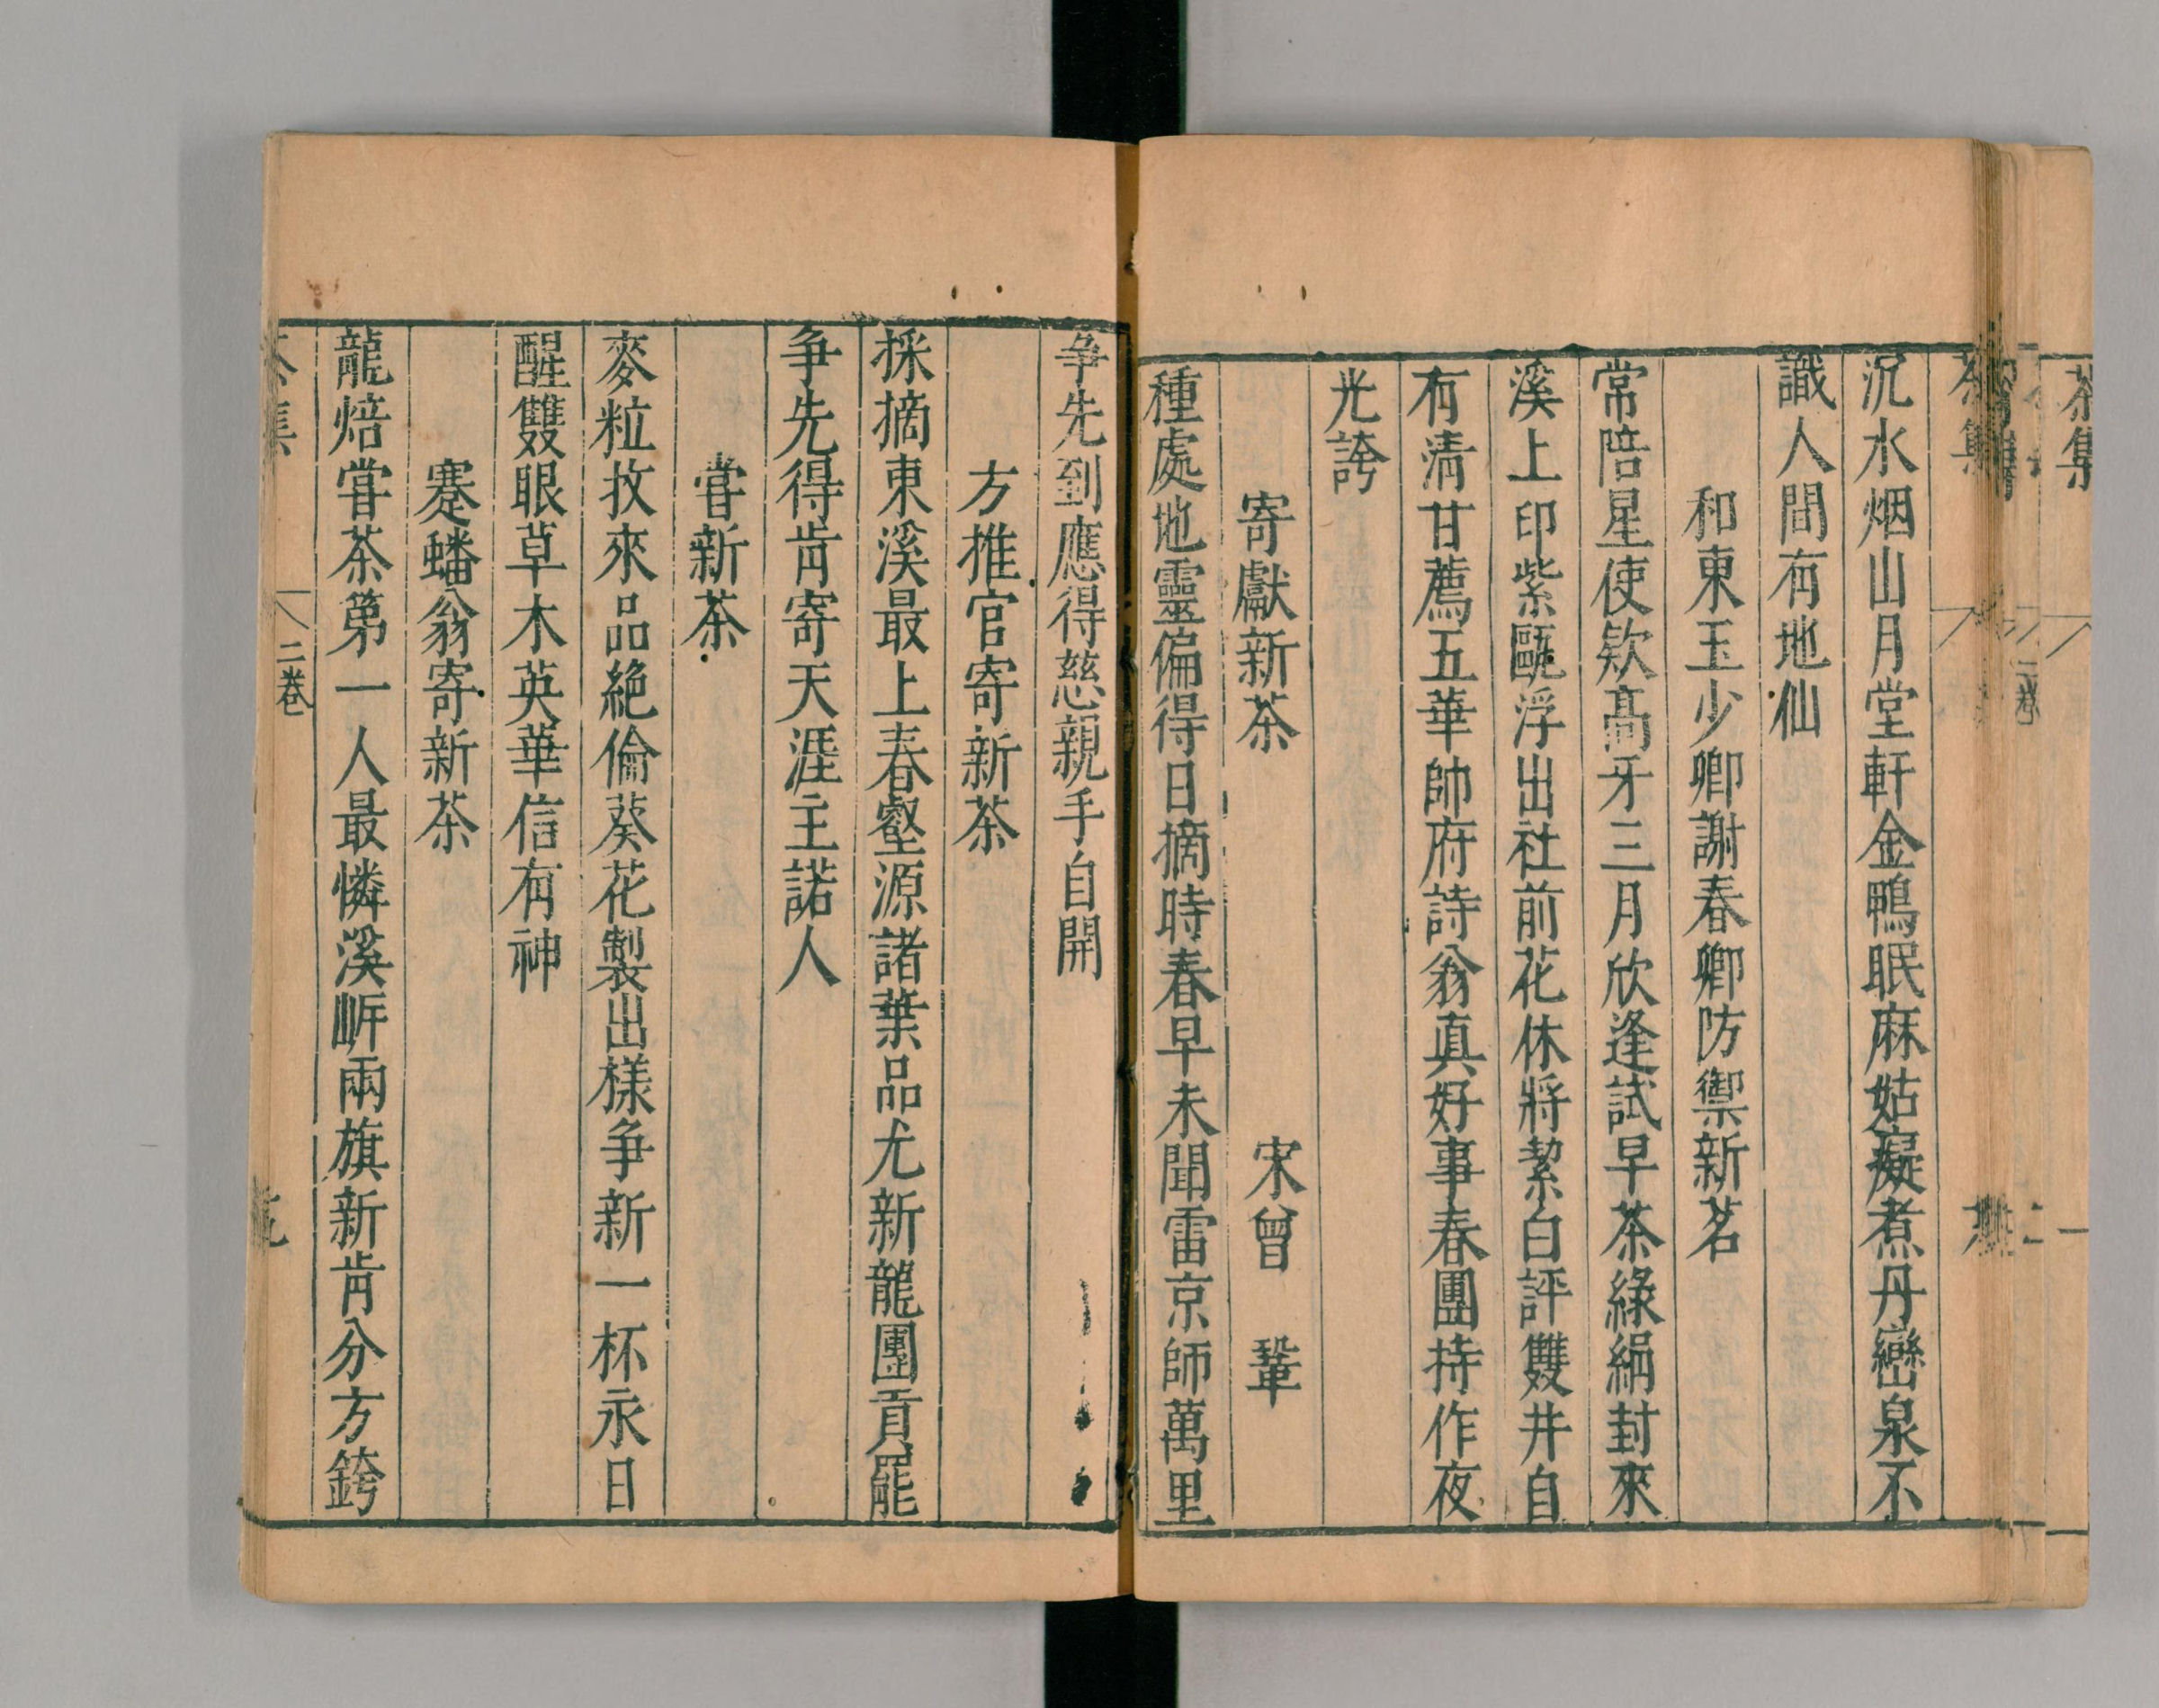 沉水烟山月堂軒金鴨眠麻姑癡煮丹巒泉不
識人間有地仙
和東玉少卿謝春卿防禦新茗
常陪星使欵高牙三月欣逢試早茶綠絹封來
溪上印紫甌浮出社前花休將絜白評雙井自
有清甘薦五華帥府詩翁真好事春團持作夜
光誇
寄獻新茶
宋曾鞏
種處地靈偏得日摘時春早未聞雷京師萬里
争先到應得慈親手自開
方推官寄新茶
採摘東溪最上春壑源諸葉品尤新龍團貢罷
争先得肯寄天涯主諾人
嘗新茶
麥粒收來品絕倫葵花製出樣争新一杯永日
醒雙眼草木英華信有神
蹇蟠翁寄新茶
龍焙嘗茶第一人最憐溪岍兩旗新肯分方銙
集
二卷